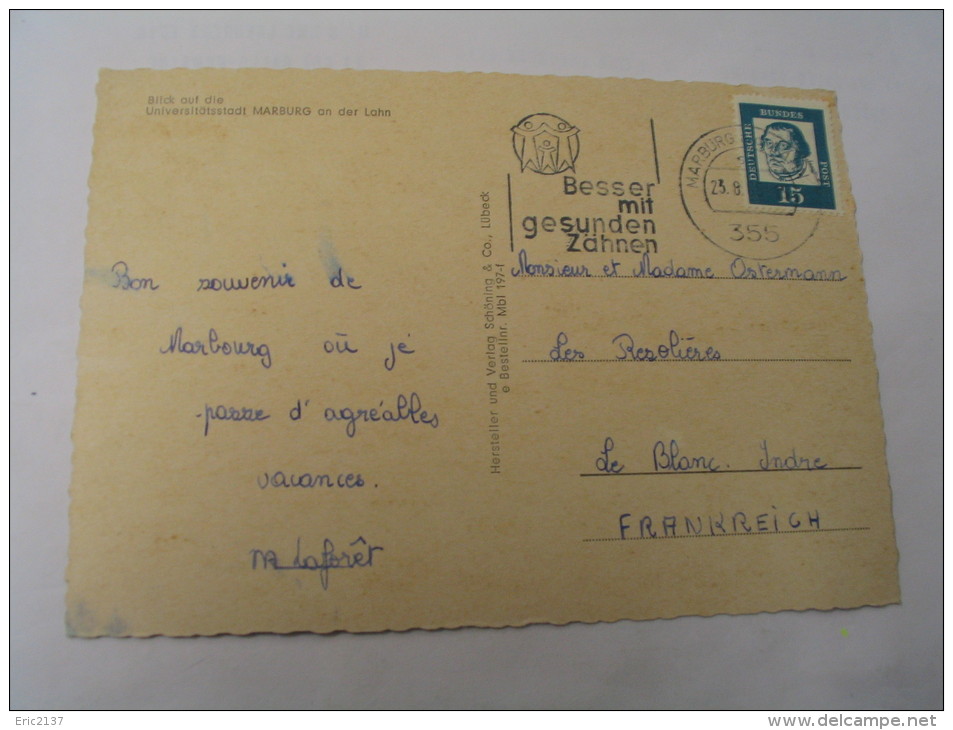 Blick auf die
Universitätsstadt MARBURG an der Lahn
Bon souvenir de
Marbourg où je
passe d'agréables
vacances.
Laforêt
Hersteller und Verlag Schöning & Co., Lübeck
e Bestellnr. Mbl 197-f
Besser
mit
gesunden
Zähnen
MARBURG
23.8.
355
DEUTSCHE
BUNDES
POST
15
Monsieur et Madame Ostermann
Les Resolières
Le Blanc. Indre
FRANKREICH
Eric2137
www.delcampe.net